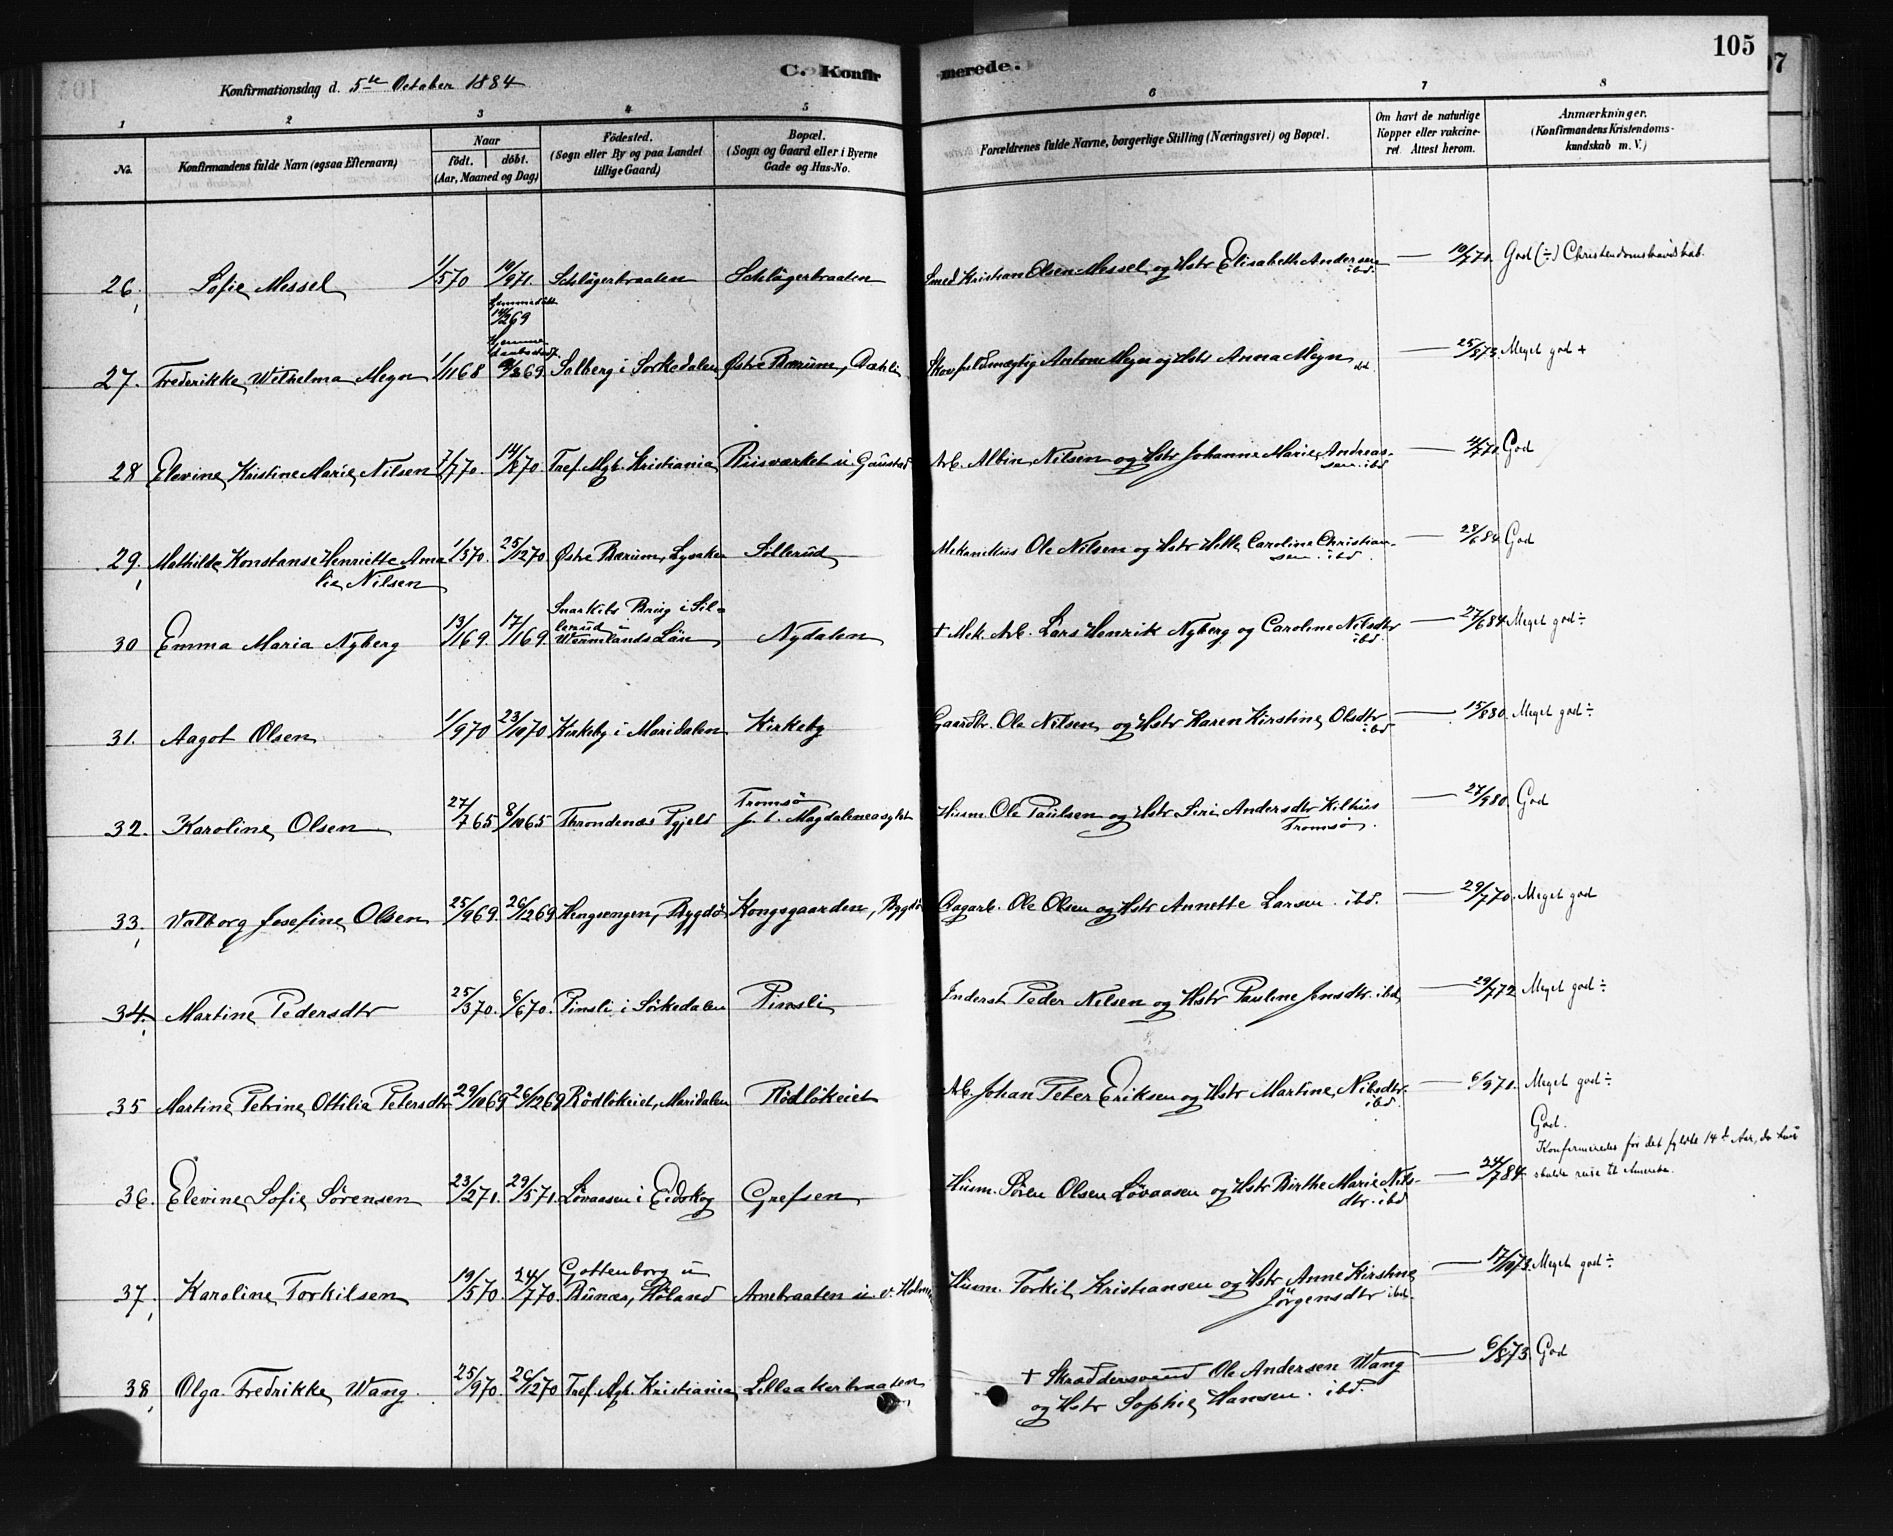 105
C. Konfir
merede.
Konfirmationsdag d. 5te October 1884
1 2 3 4 5 6 7 8
No.
Konfirmandens fulde Navn (ogsaa Efternavn)
Naar
født. døbt.
(Aar, Maaned og Dag)
Fødested.
(Sogn eller By og paa Landet
tillige Gaard)
Bopæl.
(Sogn og Gaard eller i Byerne
Gade og Hus-No.
Forældrenes fulde Navne, borgerlige Stilling (Næringsvei) og Bopæl.
Om havt de naturlige
Kopper eller vakcine-
ret. Attest herom.
Anmærkninger.
(Konfirmandens Kristendoms-
kundskab m. V.)
26. Sofie Messel 1/5 70 10/9 71. Schlägerbraaten Schlägerbraaten Smed Kristian Olsen Messel og Hstr Elisabeth Andersen — 19/7 70. God (÷) Christendomskundskab.
ibd.
27. Frederikke Wilhelma Megn 1/11 68 Hjemmedøbt Solberg i Sørkedalen Østre Bærum, Dæhli Anton Megn og Hstr Anna Megn ibd — 25/5 73. Meget god +
28 Elevine Kristine Marie Nilsen 7/7 70. 14/8 70. Tref. Mgh. Kristiania Riisværket u. Gaustad Arb. Albin Nilsen og Hstr Johanne Marie Andreas- — God
sen. ibd
29. Mathilde Konstanse Henriette Ama 1/5 70. 25/12 70. Østre Bærum, Lysaker Sollerud Mekanikus Ole Nilsen og Hstr Helle Caroline Christian- — 28/6 84. God
lie Nilsen
sen. ibd.
30 Emma Maria Nyberg 13/1 69. 17/1 69. Wermlands Län Nydalen + Mek. Arb. Lars Henrik Nyberg og Caroline Nilsdtr — 27/6 84. Meget god ÷
ibd.
31. Aagot Olsen 1/9 70 23/10 70 Kirkeby i Maridalen Kirkeby Gaardbr. Ole Nilsen og Hstr Karen Kirstine Olsdtr — 15/8 80. Meget god ÷
ibd
32. Karoline Olsen 27/7 65 8/10 65 Throndenæs Pgjeld Tromsø Husm. Ole Paulsen og Hstr Siri Andersdtr Kilhus — 27/9 80. God
Tromsø.
33. Valborg Josefine Olsen 25/9 69. 26/12 69 Hengsengen, Bygdø Kongsgaarden, Bygdø Dagarb. Ole Olsen og Hstr Annette Larsen. ibd. — 29/7 70. Meget god
34. Martine Pedersdtr 25/3 70. 6/6 70. Pinsli i Sørkedalen Pinsli Inderst Peder Nilsen og Hstr Pauline Jonsdtr. ibd — 29/7 72. Meget god ÷
35 Martine Petrine Ottilie Petersdtr 29/10 69 26/12 69 Rødløkeiet, Maridalen Rødløkeiet Arb. Johan Peter Eriksen og Hstr Martine Nilsdtr. — 6/9 71. Meget god ÷
ibd.
36. Elevine Sofie Sørensen 23/2 71. 29/5 71. Løvaasen i Eidskog Grefsen Husm. Søren Olsen Løvaasen og Hstr Birthe Marie Nils- — 24/7 84. God.
dtr. ibd
Konfirmeredes før det fyldte 14de Aar, da hun
skulde reise til Amerika.
37. Karoline Torkilsen 19/5 70. 24/7 70. Gottenborg u Arnebraaten u. v. Holmen Husm. Torkil Kristiansen og Hstr Anne Kirstine — 17/10 73. Meget god ÷
Bunæs, Høland
Jörgensdtr ibd.
38, Olga Fredrikke Wang. 25/9 70. 26/12 70. Tref. Mgh. Kristiania Lilleakerbraaten + Skræddersvend Ole Andersen Wang — 6/8 73. God
og Hstr Sophie Hansen. ibd.